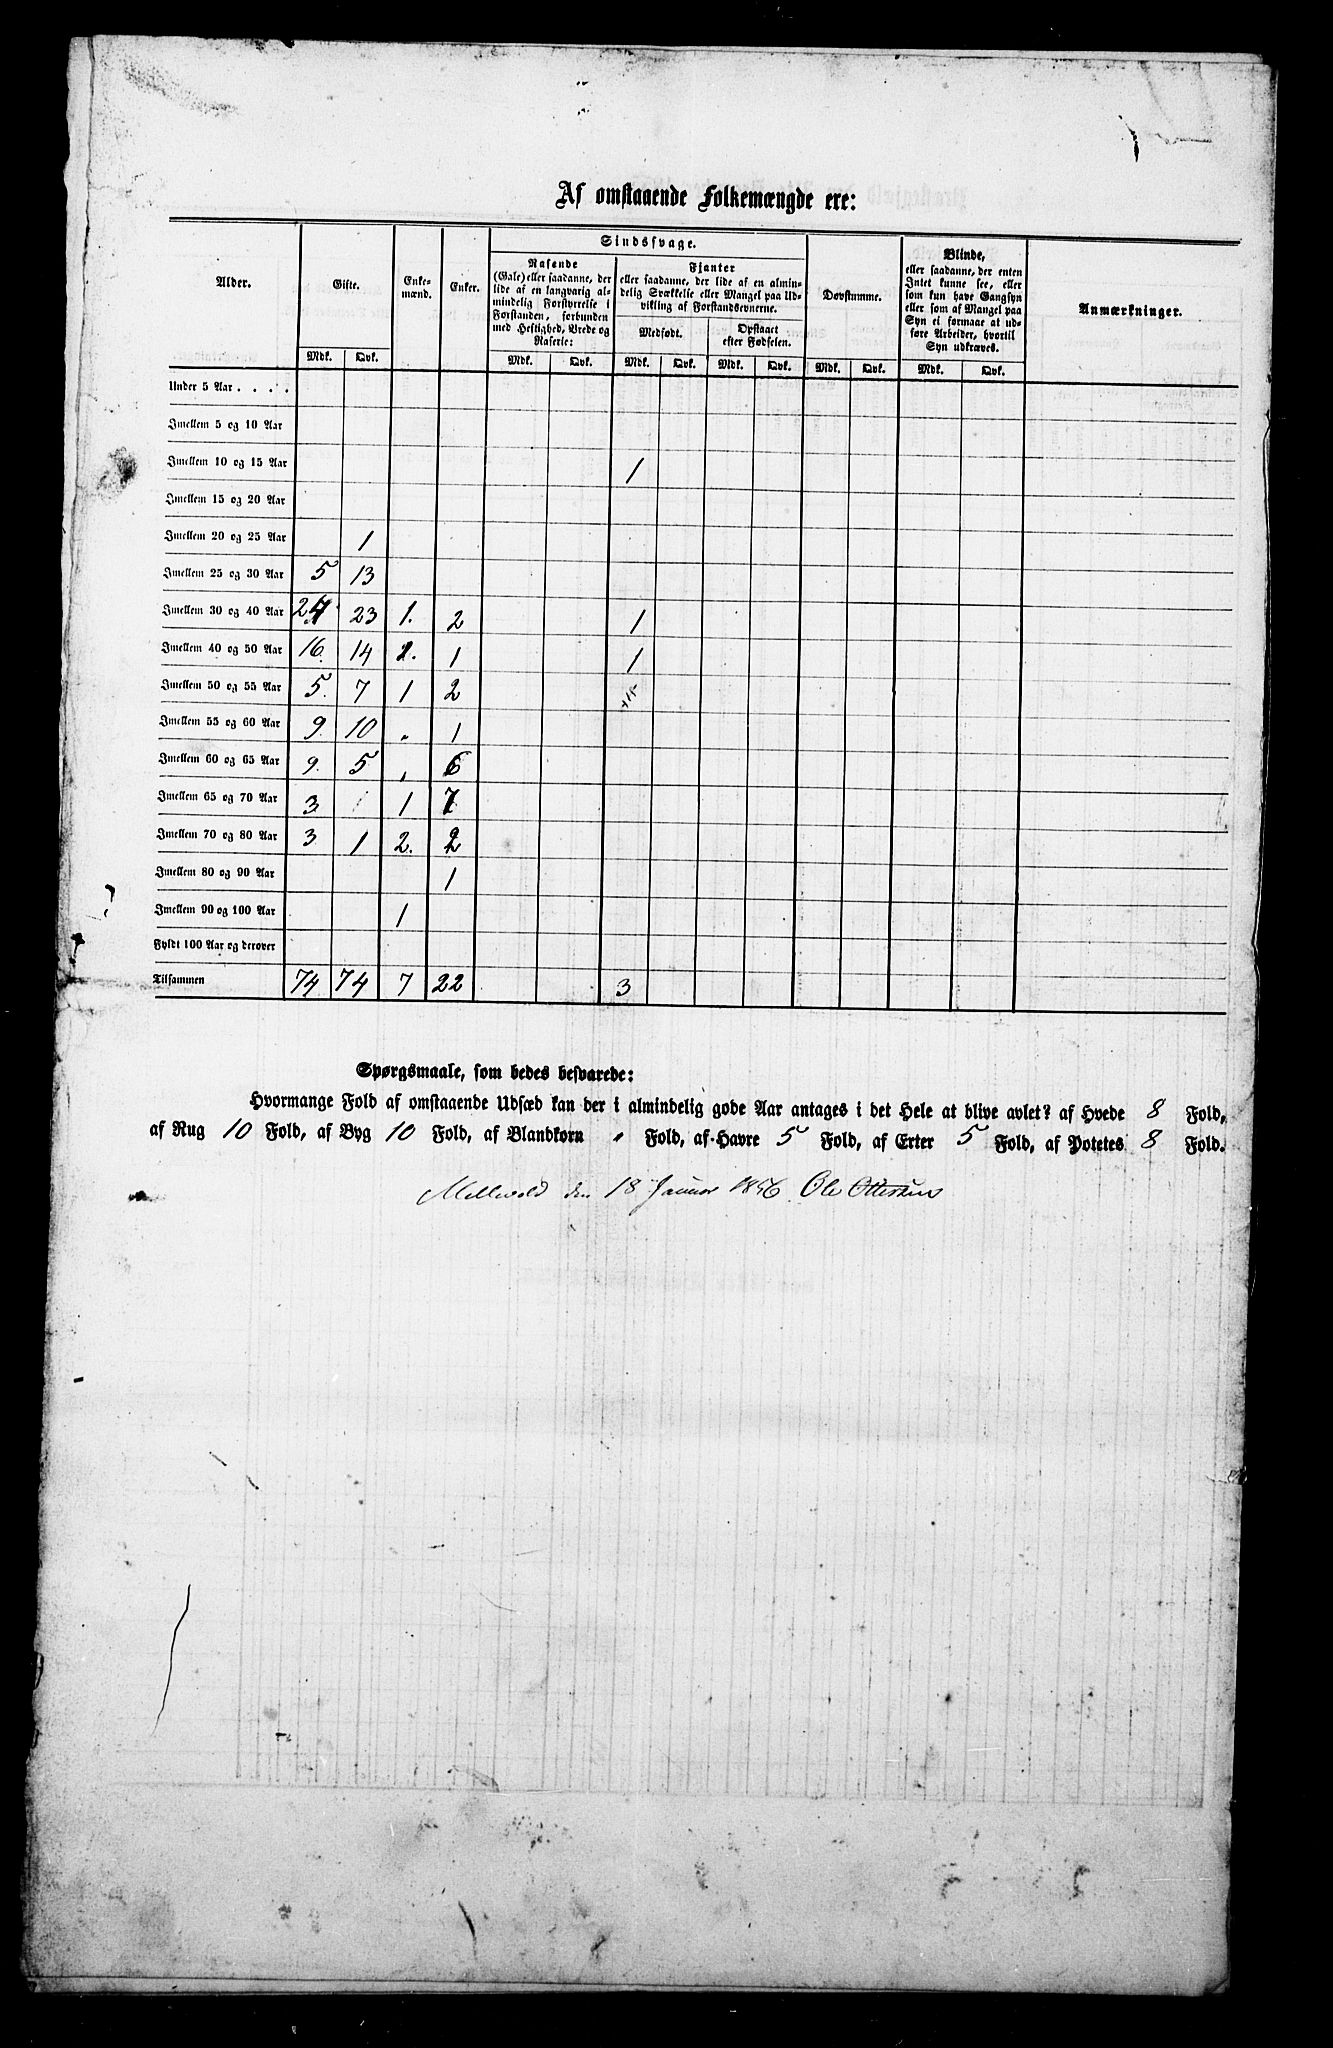 Af omstaaende Folkemængde ere:
Alder. Gifte. Enke-mænd. Enker. Sindssvage. Døvstumme. Blinde, Anmærkninger.
Rasende
(Gale) eller saadanne, der
lide af en langvarig al-
mindelig Forstyrrelse i
Forstanden, forbunden
med Heftighed, Vrede og
Raserie:
Fjanter
eller saadanne, der lide af en almin-
delig Svækkelse eller Mangel paa Ud-
vikling af Forstandsevnerne.
Medfødt. Opstaaet
efter Fødselen.
eller saadanne, der enten
Intet kunne see, eller
som kun have Gangsyn
eller som af Mangel paa
Syn ei formaae at ud-
føre Arbeider, hvortil
Syn udkræves.
Mdk. Qvk. Mdk. Qvk. Mdk. Qvk. Mdk. Qvk. Mdk. Qvk. Mdk. Qvk.
Under 5 Aar . . . .
Imellem 5 og 10 Aar
Imellem 10 og 15 Aar 1
Imellem 15 og 20 Aar
Imellem 20 og 25 Aar 1
Imellem 25 og 30 Aar 5 13
Imellem 30 og 40 Aar 24 23 1. 2 1
Imellem 40 og 50 Aar 16. 14 1. 1 1
Imellem 50 og 55 Aar 5. 7 1 2
Imellem 55 og 60 Aar 9. 10 „ 1
Imellem 60 og 65 Aar 9. 5 „ 6
Imellem 65 og 70 Aar 3 1 7
Imellem 70 og 80 Aar 3 1 2. 2
Imellem 80 og 90 Aar 1
Imellem 90 og 100 Aar 1
Fyldt 100 Aar og derover
Tilsammen 74 74 7 22 3
Spørgsmaale, som bedes besvarede:
Hvormange Fold af omstaaende Udsæd kan der i almindelig gode Aar antages i det Hele at blive avlet? af Hvede 8 Fold,
af Rug 10 Fold, af Byg 10 Fold, af Blandkorn „ Fold, af Havre 5 Fold, af Erter 5 Fold, af Potetes 8 Fold.
den 18 Januar 1856 Ole